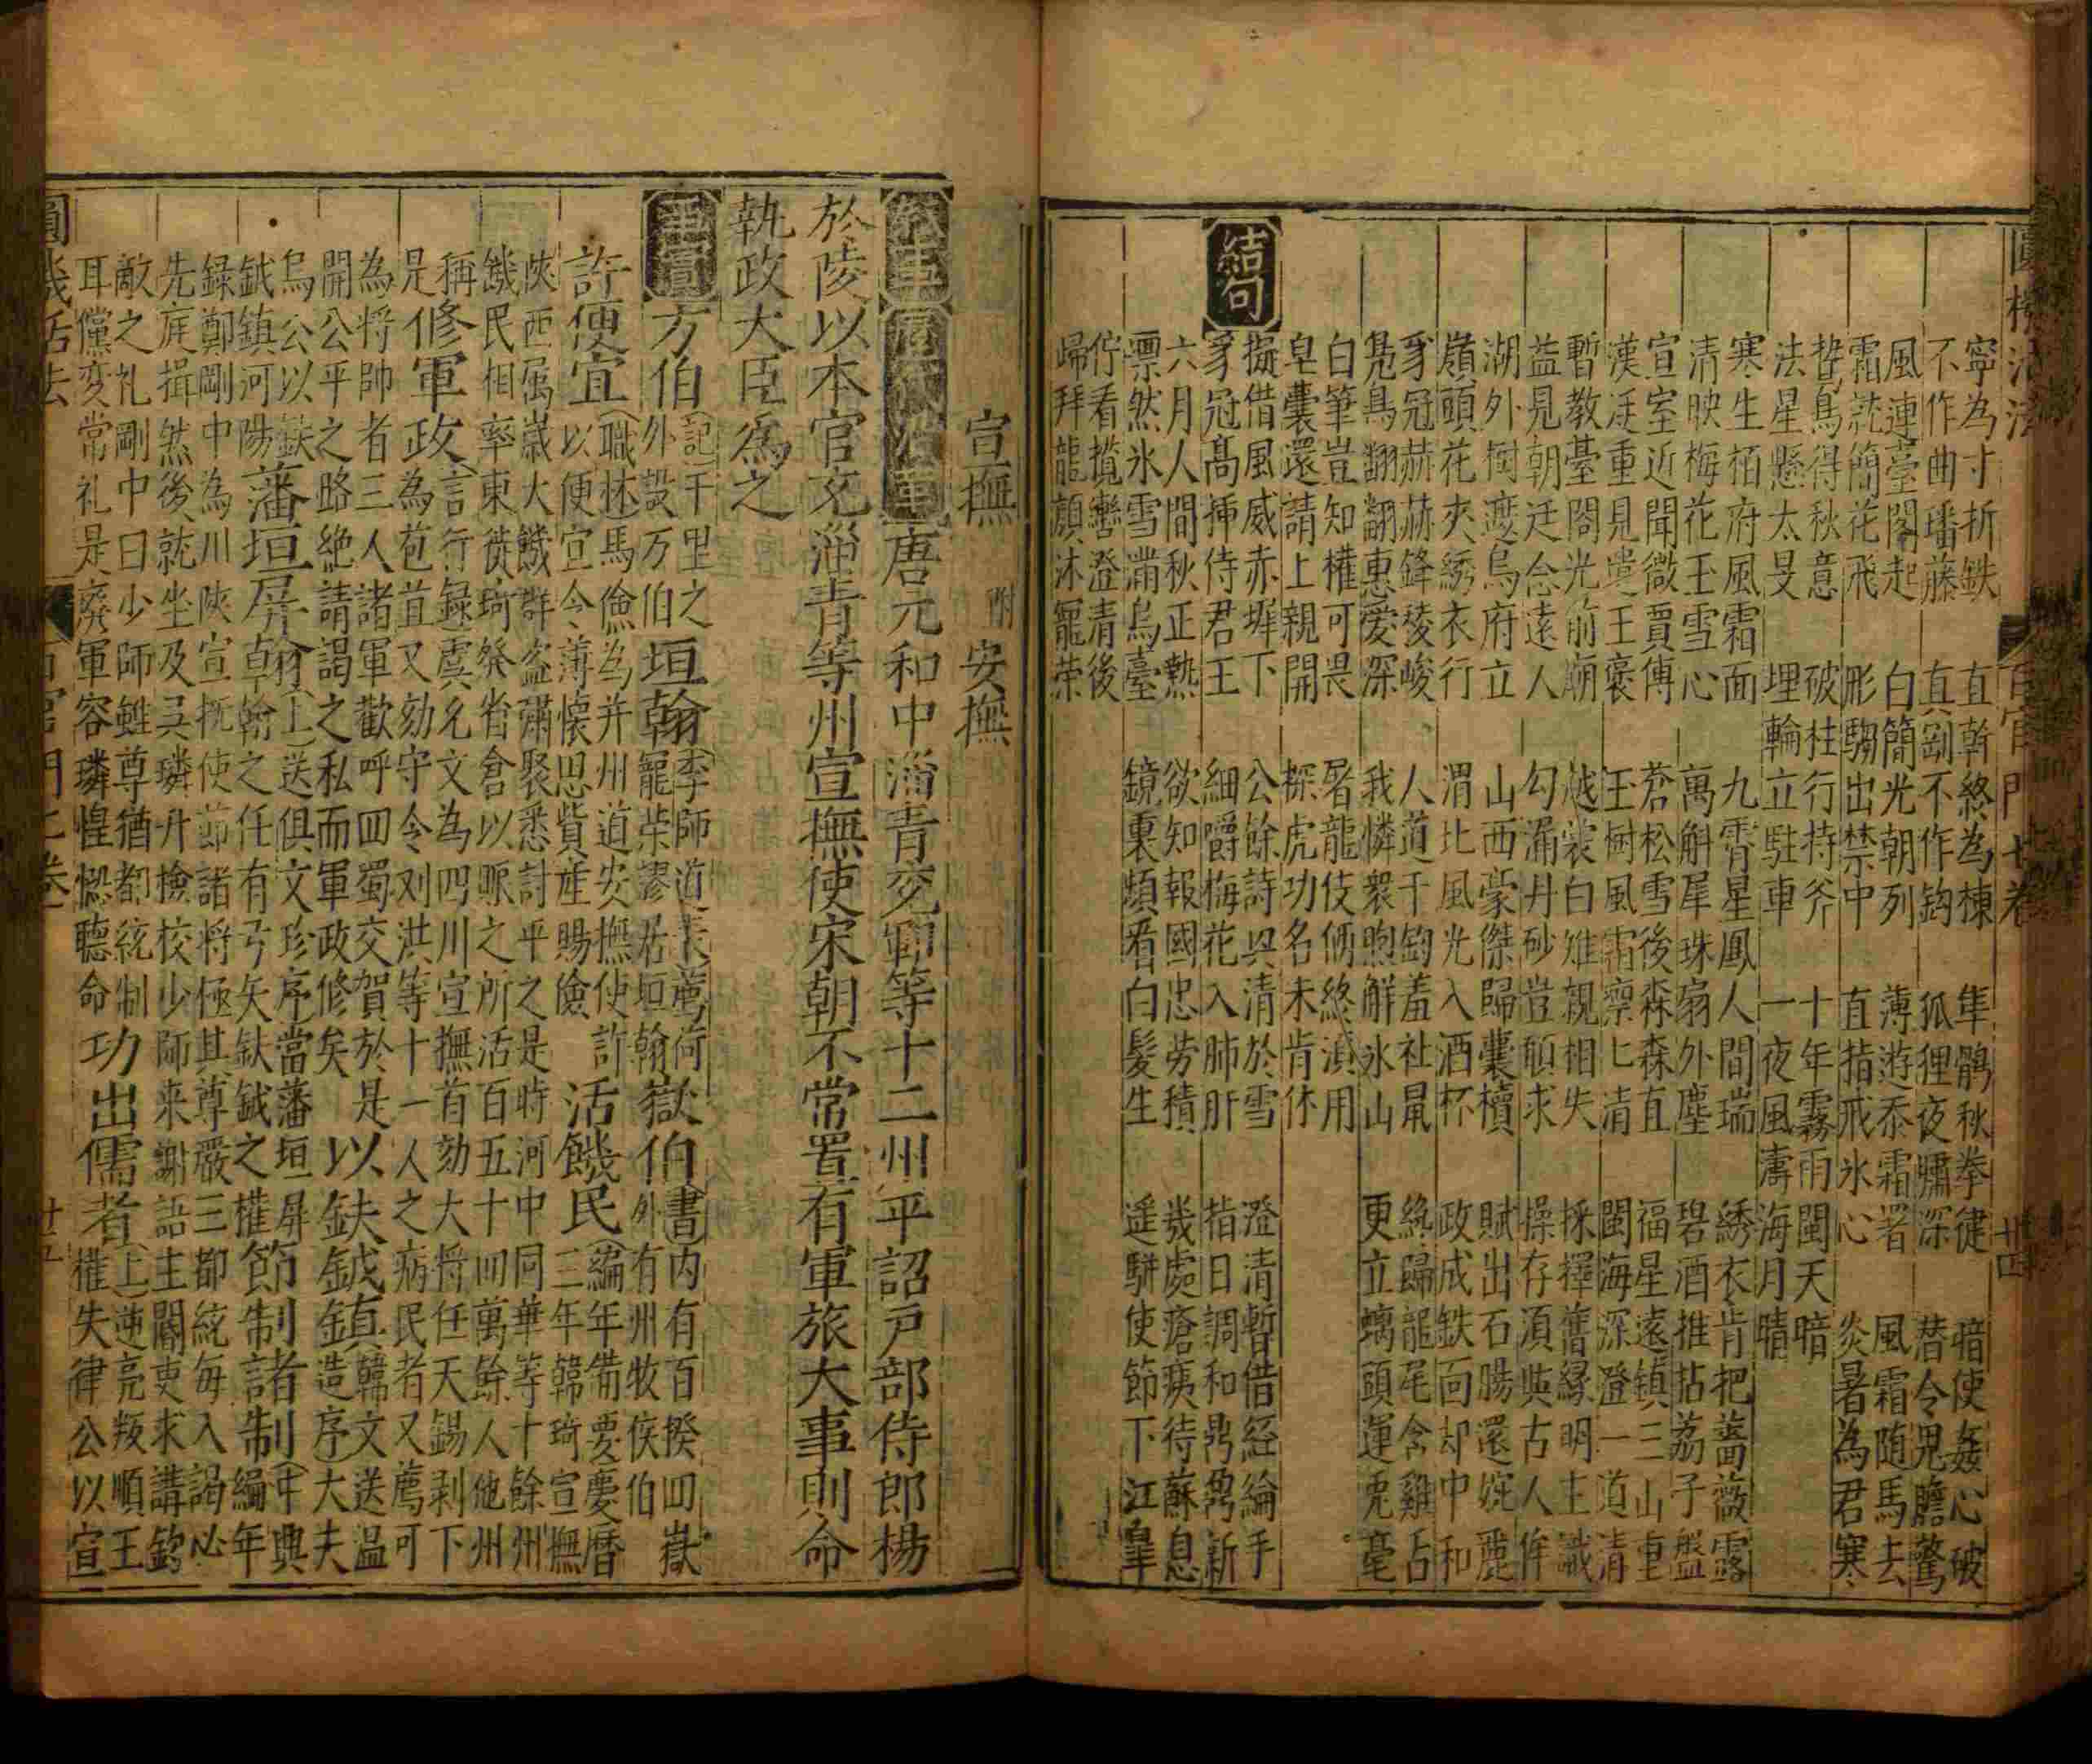 圓機活法 百官門七卷 廿四
寧為寸折鉄 直幹終為棟 隼鶻秋拳健 暗使姦心破
不作曲蟠藤 真剛不作鈎 狐狸夜嘯深 潜令鬼膽驚
風連臺閣起 白簡光朝列 薄游忝霜署 風霜随馬去
霜就簡花飛 彤騶出禁中 直指戒氷心 炎暑為君寒
鳥得秋意 破柱行持斧 十年霧雨閩天暗
法星懸太旻 埋輪立駐車 一夜風濤海月晴
寒生栢府風霜面 九霄星鳳人間瑞 綉衣肯把薔薇露
清映梅花玉雪心 萬斛犀珠扇外塵 碧酒推拈荔子盤
宣室近聞徴賈傅 蒼松雪後森森直 福星遠鎮三山重
漢廷重見遣王褒 玉樹風霜凛凛清 閩海深澄一道清
暫教臺閣光前廟 越裳白雉親相失 採擇舊縁明主識
益見朝廷念遠人 勾漏丹砂豈頋求 操存湏與古人侔
湖外樹遮烏府立 山西蒙傑歸囊櫝 賦出石腸還婉麗
嶺頭花夾綉衣行 渭北風光入酒杯 政成鉄面却中和
豸冠赫赫鋒稜峻 人道千鈞羞社鼠 終歸龍尾含雞舌
舃翩翻惠愛深 我憐衆煦觧氷山 更立螭頭運兎毫
白筆豈知權可畏 屠龍伎倆終湏用
皂囊還請上親開 探虎功名未肯休
結句
擬借風威赤墀下 公餘詩興清於雪 澄清暫借經綸手
豸冠高挿侍君王 細嚼梅花入肺肝 指日調和鼎鼐新
六月人間秋正熱 欲知報國忠勞積 幾處瘡痍待蘇息
凛然氷雪滿烏臺 鏡裏頻看白髮生 遥駢使節下江皐
佇看攬轡澄清後
歸拜龍顔沐寵荣
宣撫 附 安撫
唐元和中淄青兗鄆等十二州平詔戸部侍郎楊
於陵以本官充淄青等州宣撫使宋朝不常置有軍旅大事則命
執政大臣為之
事實 方伯 記千里之外設方伯 垣翰 李師道表薦荷寵荣謬居垣翰 嶽伯 書内有百揆四嶽外有州牧侯伯
許便宜 職林馬儉為并州道安撫使許以便宜令薄懐恩貲産賜儉 活饑民 編年備要慶曆三年韓琦宣撫
陜西属歳大饑群盗嘯聚悉討平之是時河中同華等十餘州
饑民相率東徙琦發省倉以賑之所活百五十四萬餘人他州
稱是 修軍政 言行録虞允文為四川宣撫首劾大将任天錫剥下
為苞苴又劾守令刘洪等十一人之病民者又薦可
為将帥者三人諸軍歡呼四蜀交賀於是 以鈇鉞鎮 韓文送温造序大夫
開公平之路絶請謁之私而軍政修矣
烏公以鈇鉞鎮河陽 藩垣屏翰 上送俱文珍序當藩垣屏翰之任有弓矢鈇鉞之權 節制諸制 中興編年
録鄭剛中為川陜宣撫使節諸将極其尊嚴三都統毎入謁必
先庭揖然後就坐及吴璘升撿校少師来謝語主閽吏求講鈞
敵之礼剛中曰少師雖尊猶都統制
耳儻変常礼是廢軍容璘惶惧聴命 功出儒者 上逆亮叛順王權失律公以宣
圓機活法 百官門七卷 廿五